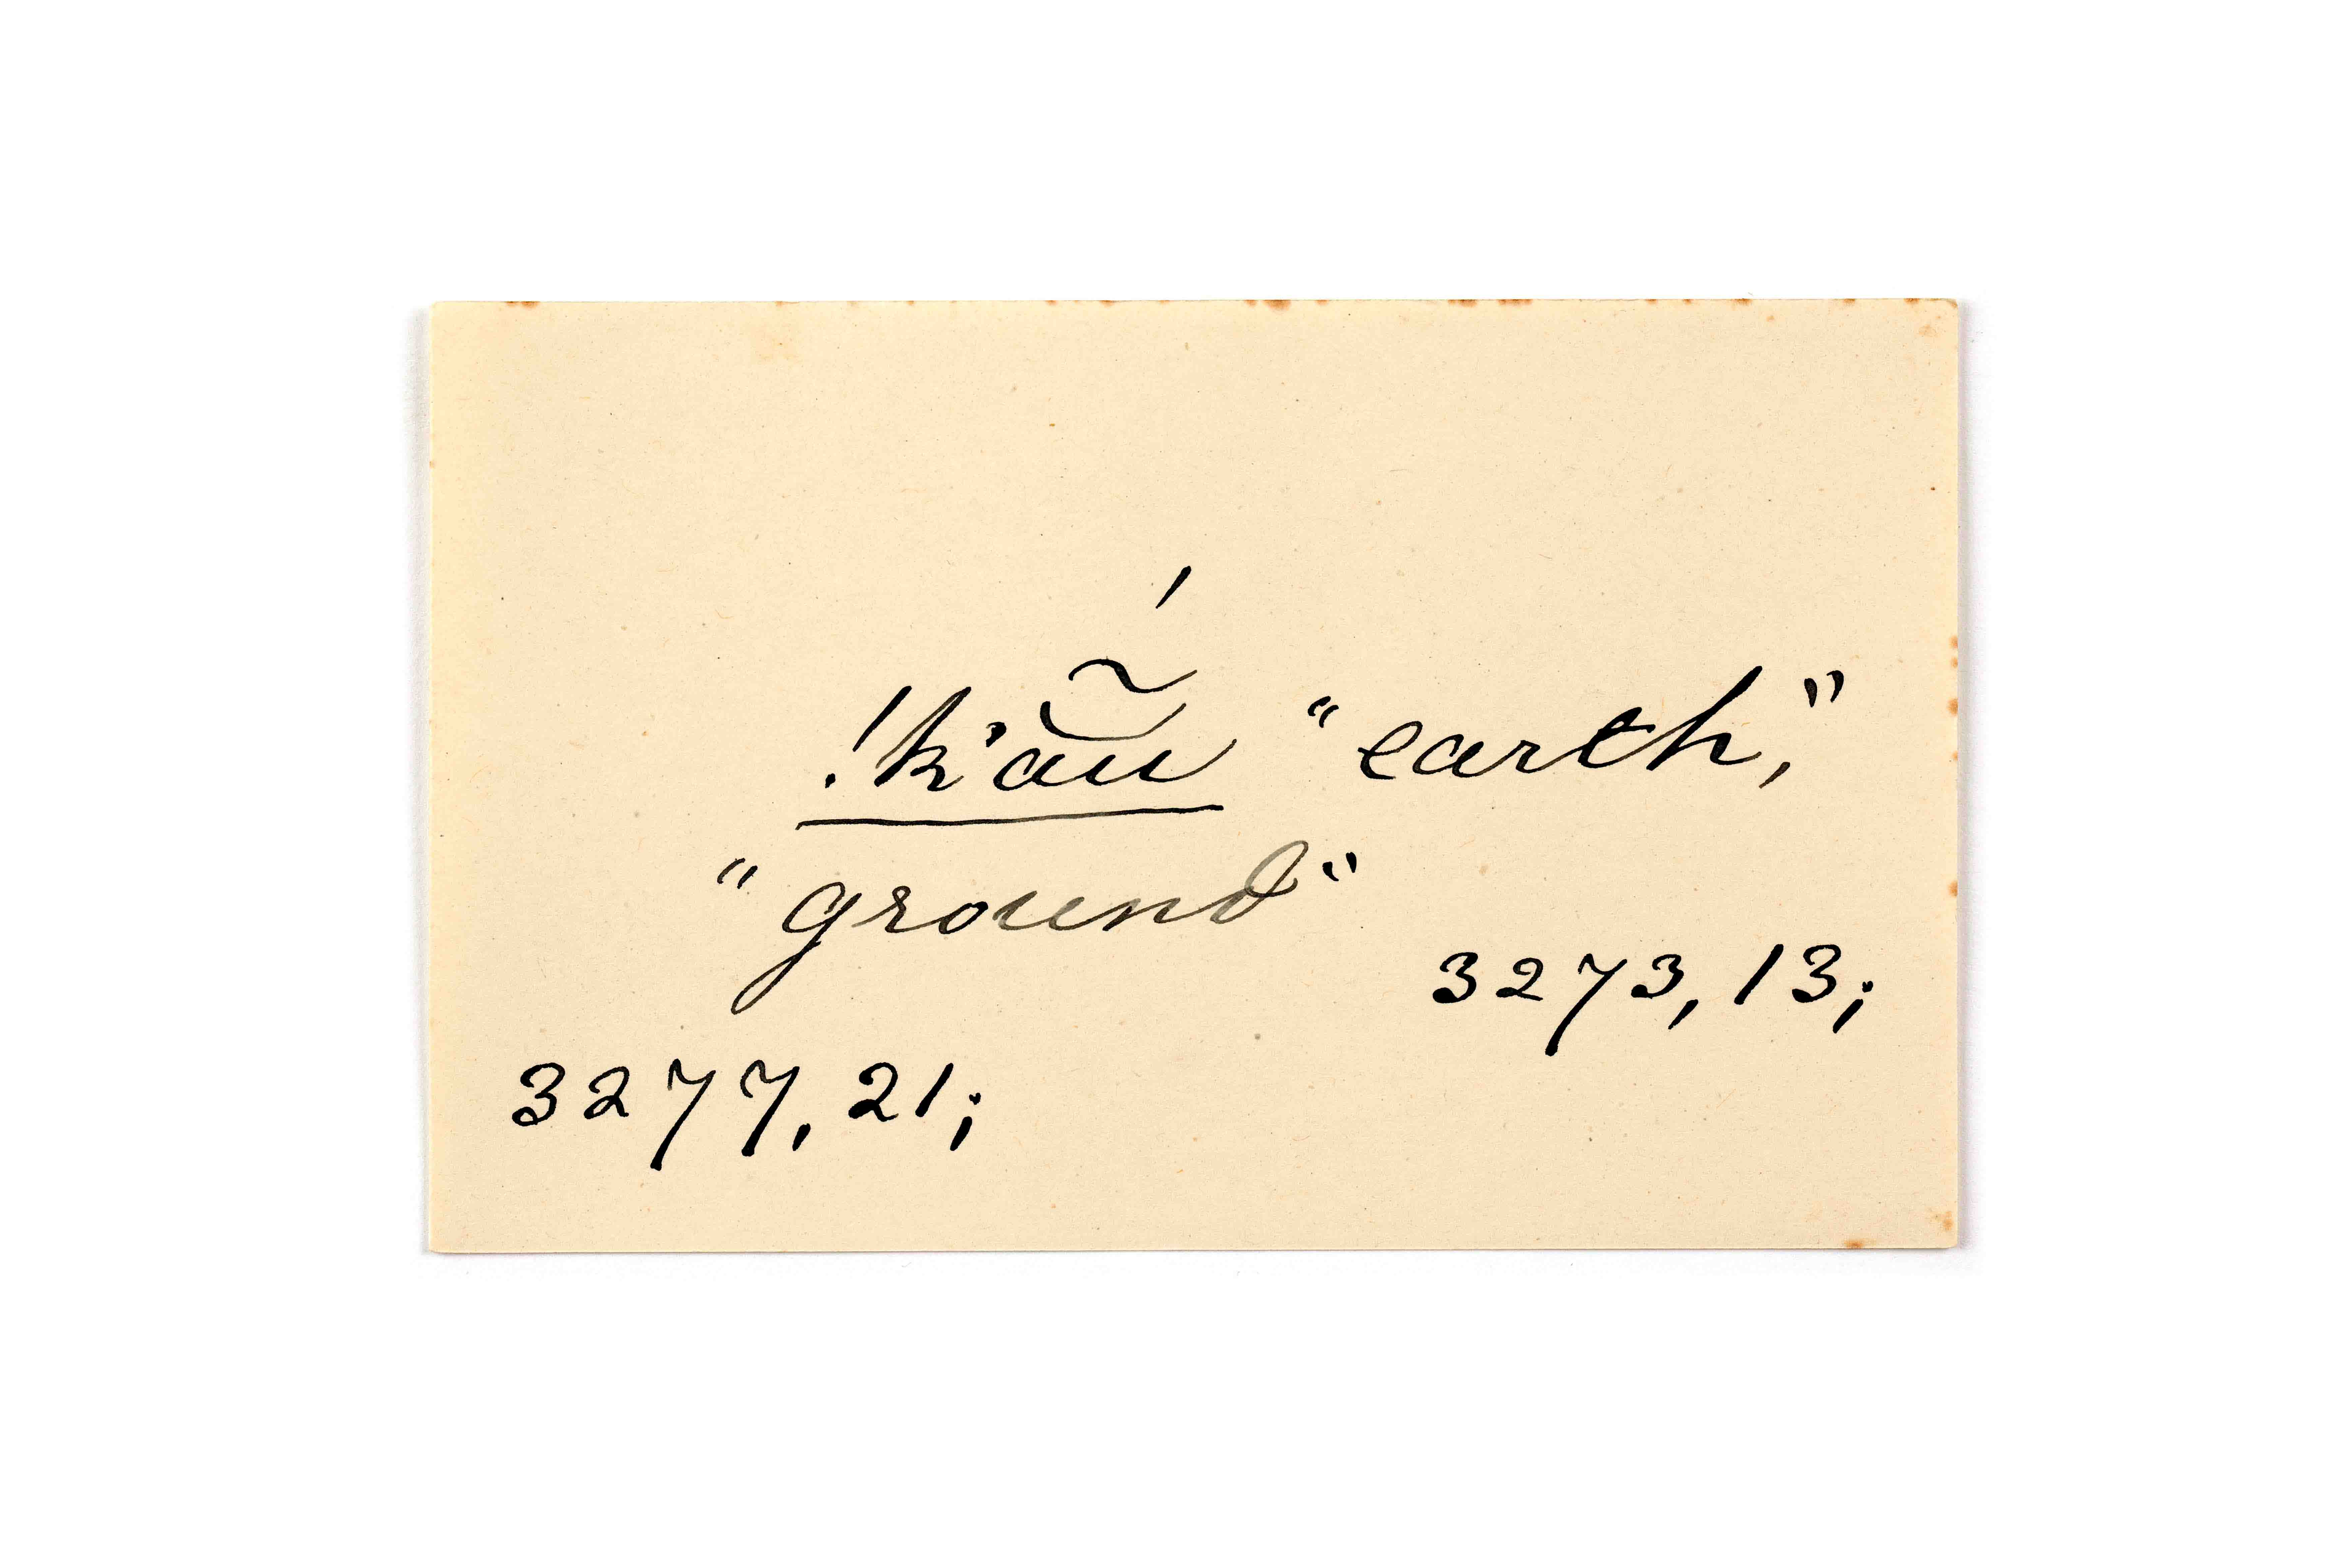 !k’ắ̃ŭ "earth,"
"ground"
3273, 13;
3277, 21;